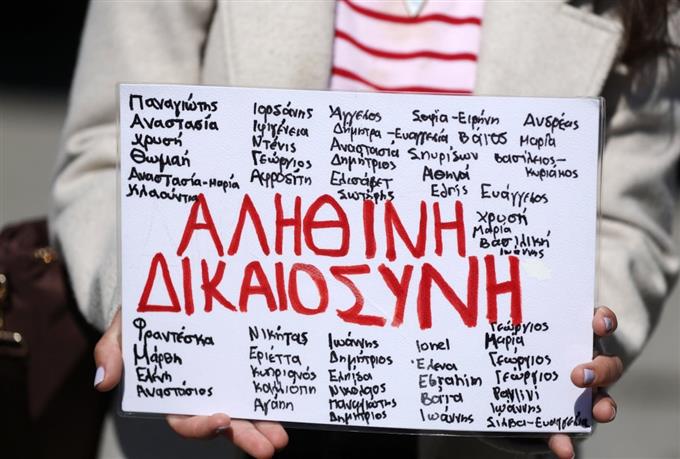 Παναγιώτης
Αναστασία
Χρυσή
Θωμαή
Αναστασία-Μαρία
Κλαούντια
Ιορδάνης
Ιφιγένεια
Ντένις
Γεώργιος
Αφροδίτη
Άγγελος
Δήμητρα-Ευαγγελία
Αναστασία
Δημήτριος
Ελισάβετ
Σωτήρης
Σοφία-Ειρήνη
Βάιος
Σπυρίδων
Αθηνά
Εντρις
Ανδρέας
Μαρία
Βασίλειος-
Κυριάκος
Ευάγγελος
Χρυσή
Μαρία
Βασιλική
Ιωάννης
ΑΛΗΘΙΝΗ
ΔΙΚΑΙΟΣΥΝΗ
Φραντέσκα
Μάρθη
Ελένη
Αναστάσιος
Νικήτας
Εριέττα
Κυπριανός
Καλλιόπη
Αγάπη
Ιωάννης
Δημήτριος
Ελπίδα
Νικόλαος
Παναγιώτης
Δημήτριος
Ionel
Έλενα
Ebrahim
Βάϊα
Ιωάννης
Γεώργιος
Μαρία
Γεώργιος
Γεώργιος
Ιωάννης
Σίλβα-Ευαγγελία